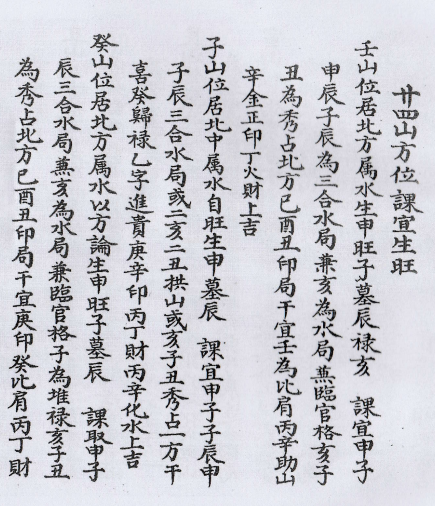 廿四山方位課宜生旺
壬山位居北方属水生申旺子墓辰禄亥 課宜申子
申辰子辰為三合水局兼亥為水局兼臨官格亥子
丑為秀占北方巳酉丑印局干宜壬為比肩丙辛助山
辛金正印丁火財上吉
子山位居北中属水自旺生申墓辰 課宜申子子辰申
子辰三合水局或二亥二丑拱山或亥子丑秀占一方干
喜癸歸禄乙字進貴庚辛印丙丁財丙辛化水上吉
癸山位居北方属水以方論生申旺子墓辰 課取申子
辰三合水局兼亥為水局兼臨官格子為堆禄亥子丑
為秀占北方巳酉丑印局干宜庚印癸比肩丙丁財